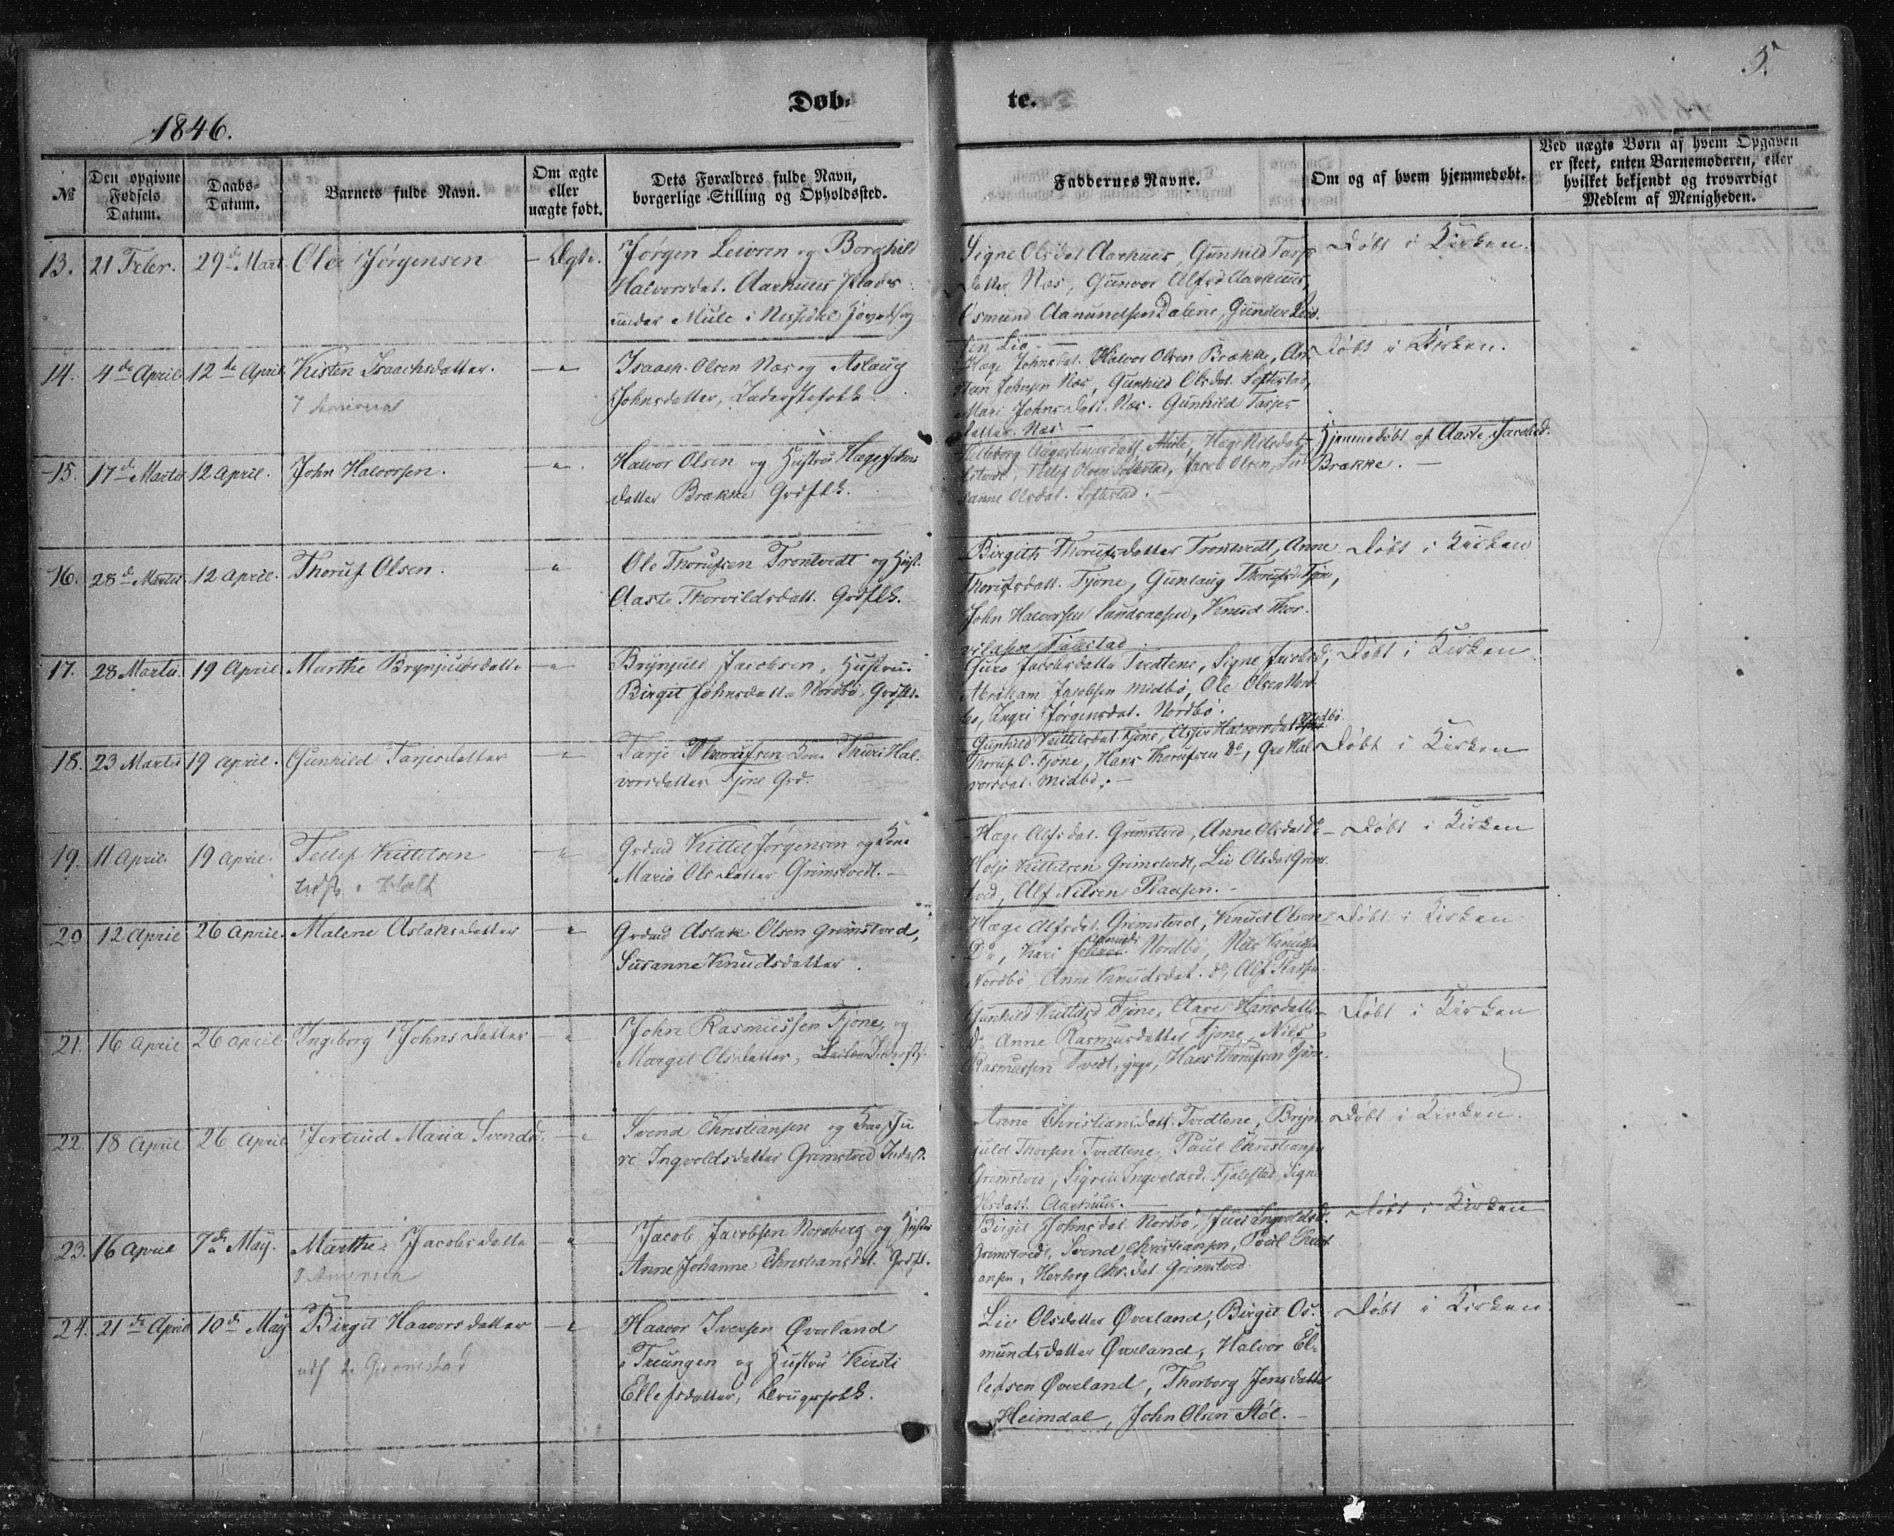 5.
Døb- te.
1846.
№
Den opgivne Fødsels Datum.
Daabs-Datum.
Barnets fulde Navn.
Om ægte eller uægte født.
Dets Forældres fulde Navn, borgerlige Stilling og Opholdssted.
Faddernes Navne.
Om og af hvem hjemmedøbt.
Ved uægte Børn af hvem Opgaven er skeet, enten Barnemoderen, eller hvilket bekjendt og troværdigt Medlem af Menigheden.
13. 21 Febr. 29de Mart. Ole Jørgensen - Ægte.
Jørgen Leivren og Borghild
Halvorsdat. Aarhuus Plads
under Mule i
Signe Olsdat Aarhuus, Gunhild Tarjs
datter Næs, Gunvor Alfsd Aarhuus,
Osmund Aanundsen Dalene, Gunder
Lie -
Døbt i Kirken.
14. 4de April 12te April Kisten Isaachsdatter. - " -
Isaach Olsen Næs og Aslaug
Johnsdatter, Inderstefolk
Hæge Johnsdat. Halvor Olsen Brække,
Johnsen Næs, Gunhild Olsdat. Softestad,
Mari Johnsdatt. Næs. Gunhild Tarjes
datter. Næs -
Døbt i Kirken.
15. 17de Martii 12 April. John Halvorsen. - " -
Halvor Olsen og Hustru Hæge Johns
datter Brække Grdflk.
Mule, Hæge Nilsdat.
Tellef Olsen Softestad, Jacob Olsen,
sanne Olsdat. Softestad. -
Hjemmedøbt af Aaste Jacobsd.
Brække. -
16. 28de Martii 12 April. Thoruf Olsen. - " -
Ole Thorufsen Trontvedt og Hust.
Aaste Thorvildsdatt. Grdflk.
Birgith Thorufsdatter Trontvedt, Anne
Thorufsdatt. Fjone, Gunlaug Thorufsd Fjone,
John Halvorsen Sundsaasen, Knud Thor-
vildsen
Døbt i Kirken
17. 28 Martii 19 April Marthe Brynjulsdatte - " -
Brynjuld Jacobsen, Hustru
Birgit Johnsdatte Nordbø. Grdflk.
Guro Jacobsdatte Tvedtene, Signe Jacobsd,
Abraham Jacobsen Midbø, Ole Olsen Nord
bø, Ingri Jørgensdat. Nordbø.
Døbt i Kirken
18. 23 Martii 19 April. Gunhild Tarjesdatter "
Tarje Thorufsen Kone Thuri Hal-
vorsdatter Fjone Grd.
Gunhild Kittilsdat Fjone, Asjer Halvorsdat Midbø
Thoruf O. Fjone, Hans Thorufsen Do, Gro Hal
vorsdat. Midbø. -
Døbt i Kirken
19. 11 April. 19 April. Tellef Kittilsen "
Grdmd Kittil Jørgensen og Kone
Maria Olsdatter Grimstvedt. -
Hæge Alfsdat. Grimstved, Anne Olsdat Do
Kittilsen Grimstvedt, Liv Olsdat Grim-
tved, Alf Nilsen Plaasen. -
Døbt i Kirken
20 12 April 26 April. Malene Aslaksdatter - "
Grdmd Aslak Olsen Grimstved,
Susanne Knudsdatter.
Hæge Alfsdat. Grimstved, Knud Olsen
Do, Kari Nordbø, Nils Knuds
Nordbø, Anne Knudsdat. do, Alf Plaasen
Døbt i Kirken
21. 16 April 26 April. Ingeborg Johnsdatter "
John Rasmussen Fjone, og
Margit Olsdatter,
Gunhild Kittilsd Fjone, Aase Hansdatte
Do Anne Rasmusdatter Fjone, Nils
Rasmussen Tvedt, Hans Thorufsen Fjone.
Døbt i Kirken
22. 18 April 26 April Jertrud Maria Svendsd. - "
Svend Christiansen og Kone Ju
ri Ingvoldsdatter Grimstved Inderst.
Anne Christiansdatt. Tvedtene, Brynj
juld Thorsen Tvedtene, Paul Christiansen
Grimstved, Sigrie Ingvoldsd. Fjalestad, Signe
Olsdatt. Aarhuus.
Døbt i Kirken.
23. 16 April 7de May. Marthe Jacobsdatte "
Jacob Jacobsen Norsberg og Hustru
Anne Johanne Christiansdat. Grdflk.
Birgit Johnsdat Nordbø, Juri Ingvoldsd.
Grimstvedt, Svend Christiansen, Poul Christi
ansen, Herborg Chr.dat Grimstved
Døbt i Kirken
24. 21de April 10de May Birgit Haavorsdatter - "
Haavor Iversen Øverland
i Treungen og Hustru Kirsti
Ellefsdatter, Brugsfolk.
Liv Olsdatter Øverland, Birgit Os-
mundsdatter Øverland, Halvor El-
lefsen Øverland, Thorborg Jensdatter
Heimdal, John Olsen Støl. -
Døbt i Kirken.